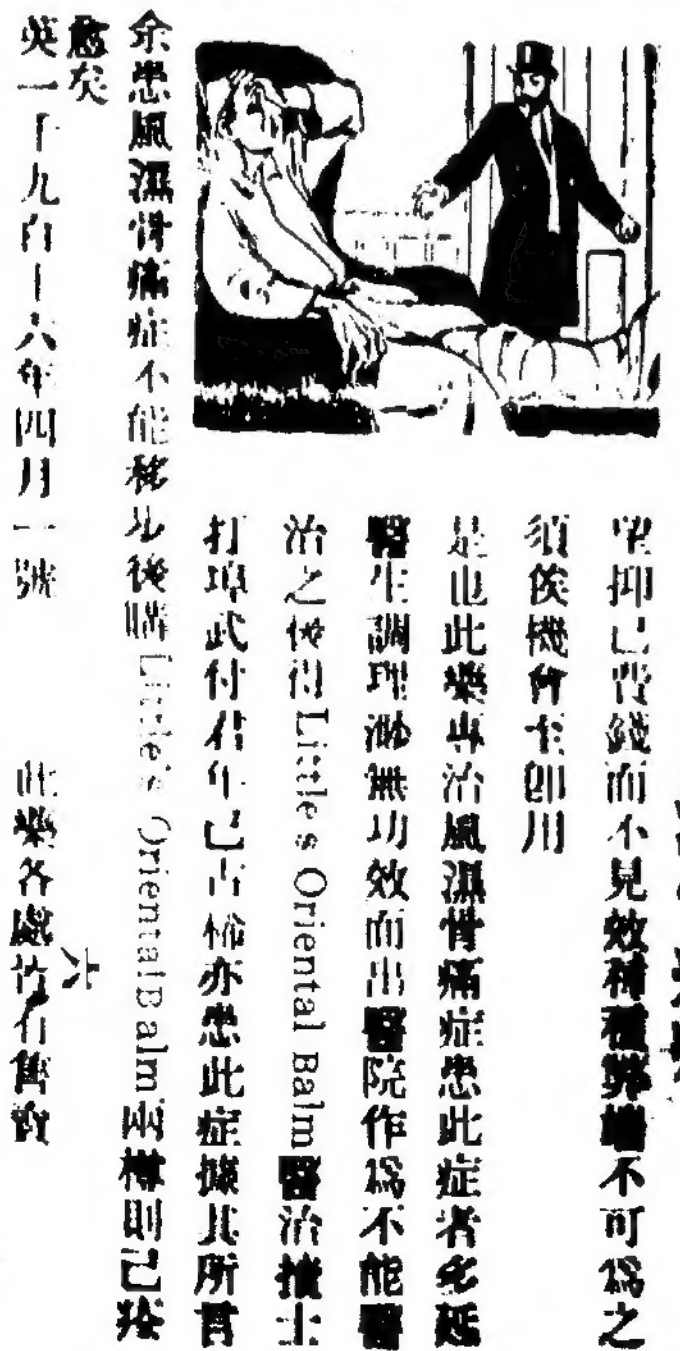 望抑已費錢而不見效種種弊端不可為之
須俟機會至即用
是也此藥專治風濕骨痛症患此症者多延
醫生調理渺無功效而出醫院作為不能醫
治之後得Little's Oriental Balm醫治擯士
打埠武付君年已古稀亦患此症據其所言
余患風濕骨痛症不能移步後購Little's Oriental Balm兩樽則已痊
愈矣
英一千九百十六年四月一號
此藥各處皆有售賣
六